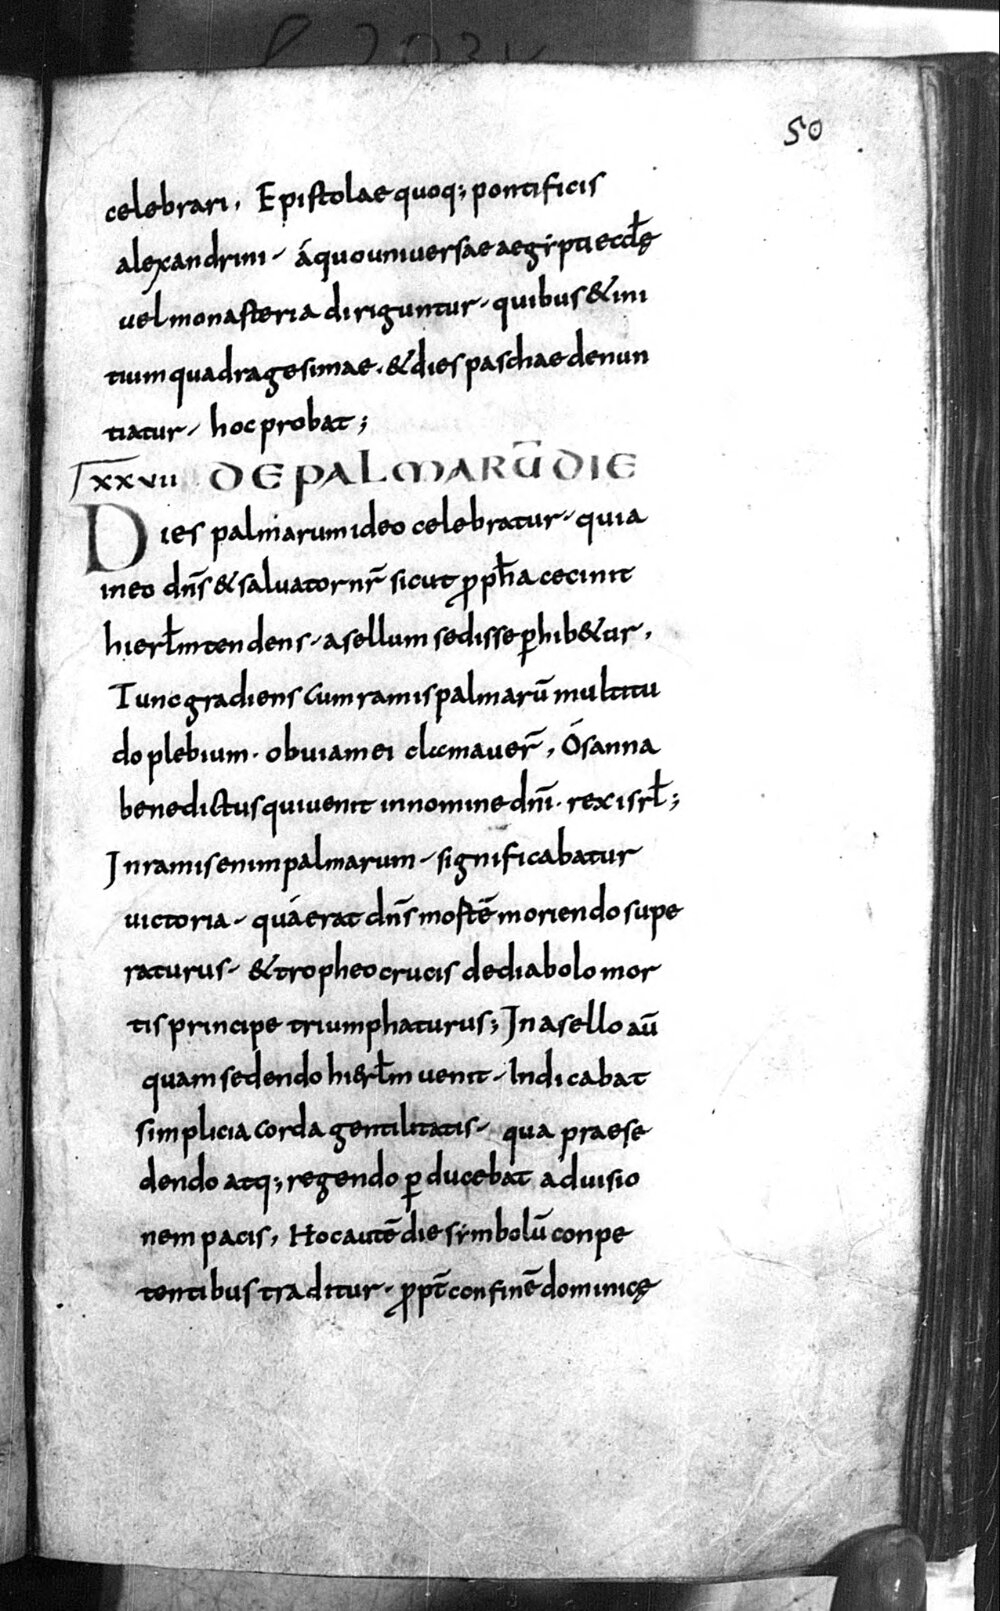 50
celebrari, Epistolae quoq; pontificis
alexandrini - áquo universae aegipti eccłę
vel monasteria diriguntur - quibus & ini
tium quadragesimae . & dies paschae denun
tiatur - hoc probat ;
xxvii DE PALMARŪ DIE
Dies palmarum ideo celebratur - quia
in eo dn̄s & salvator nr̄ sicut ꝓph̄a cecinit
hierłm tendens - asellum sedisse ꝑhib&ur,
Tunc gradiens cum ramis palmarū multitu
do plebium . obviam ei clamaver̄, Ósanna
benedictus qui venit in nomine dn̄i . rex isrł ;
In ramis enim palmarum - significabatur
victoria - quá erat dn̄s mostē moriendo supe
raturus - & tropheo crucis de diabolo mor
tis principe triumphaturus ; In asello aū
quam sedendo hierłm venit - Indicabat
simplicia corda gentilitatis - qua praese
dendo atq; regendo ꝑducebat ad visio
nem pacis, Hoc autē die simbolū conpe
tentibus traditur - ꝓpt̄ confinē dominicę